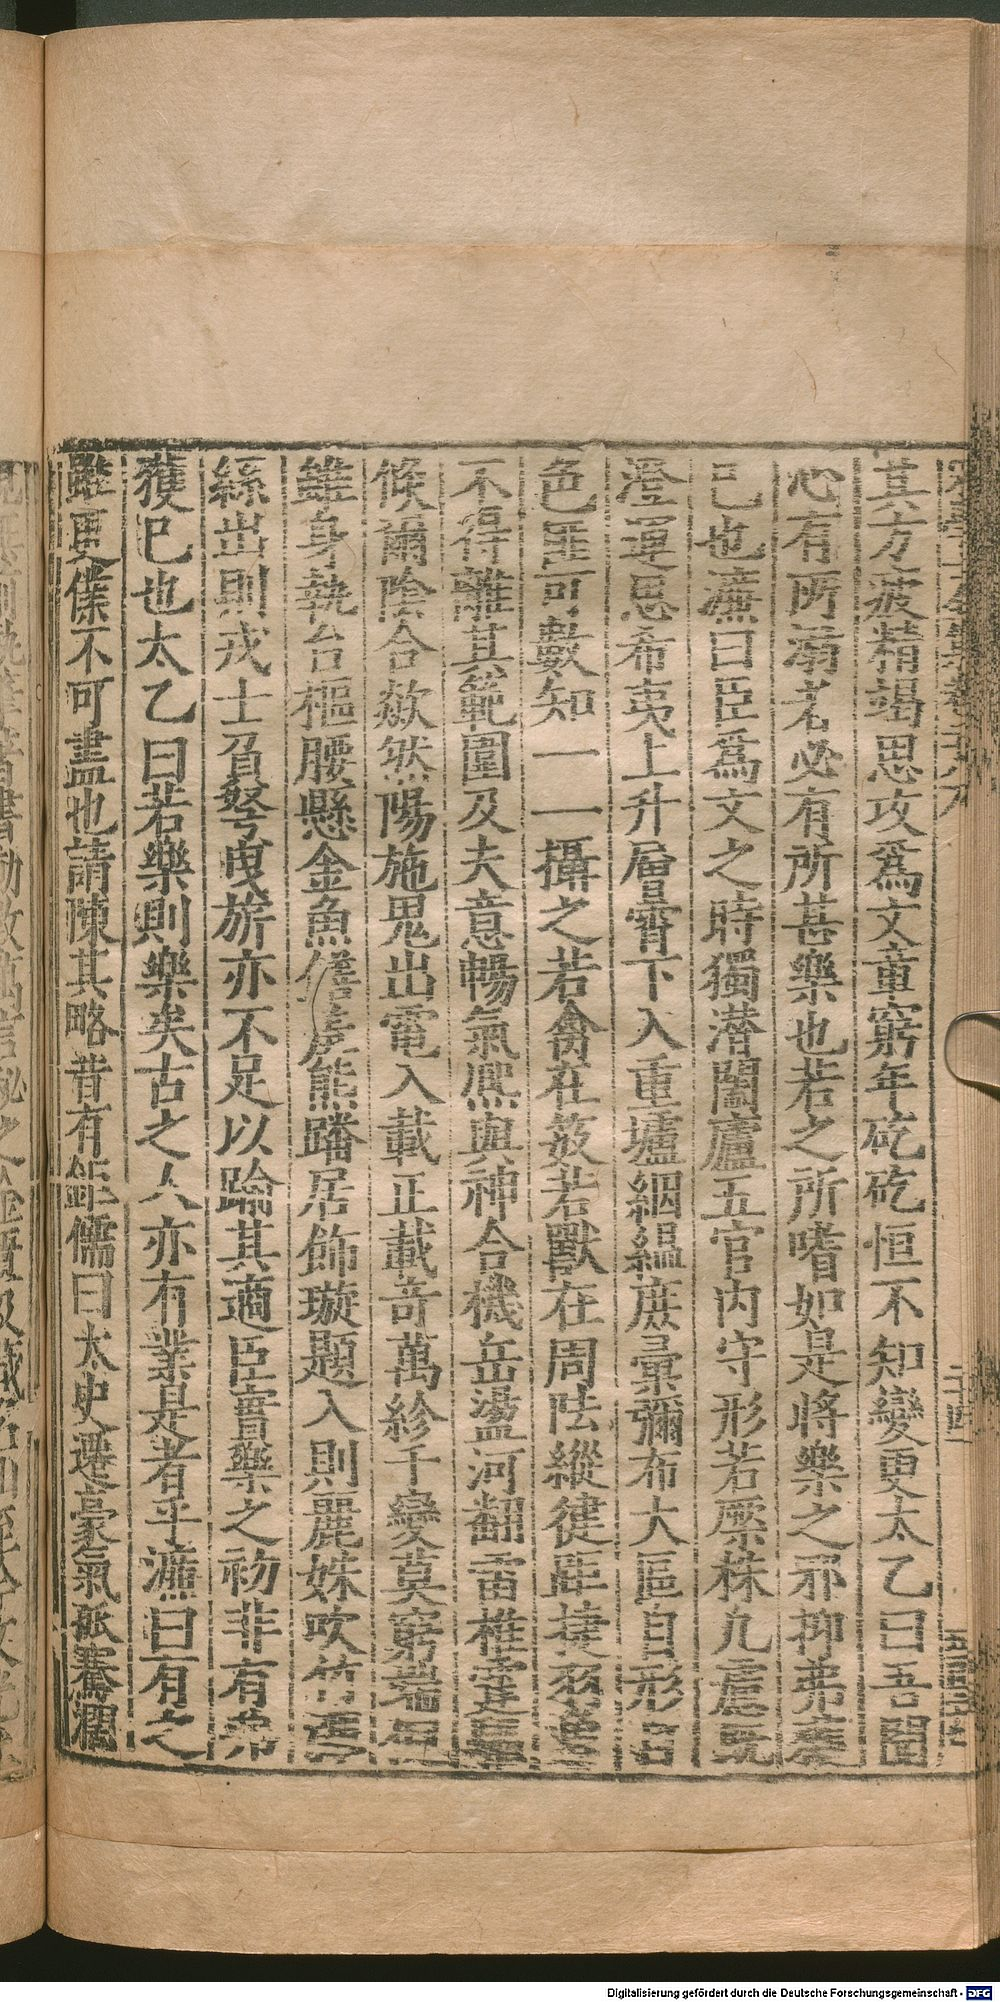 其方疲精竭思攻爲文章窮年矻矻恒不知變更太乙曰吾聞
心有所溺者必有所甚樂也若之所嗜如是將樂之邪抑弗獲
已也濂曰臣爲文之時獨潛闔廬五官內守形若橛株九慮旣
澄運思希夷上升層霄下入重壚絪縕庶彙彌布大區自形自
色匪可數知一一攝之若禽在笯若獸在周阹縱徤距捷
不得離其範圍及夫意暢氣熈與神合機岳盪河翻雷椎霆
倏爾陰合歘然陽施鬼出電入載正載竒萬紾千變莫窮端
雖身執台樞腰懸金魚熊蹯居飾璇題入則麗姝吹竹彈
絲出則戎士負弩曳旂亦不足以踰其適臣實樂之初非有弗
獲巳也太乙曰若樂則樂矣古之人亦有業是者乎濂曰有之
雖更僕不可盡也請陳其略昔有鉅儒曰太史遷豪氣孤騫濶
二十四
Digitalisierung gefördert durch die Deutsche Forschungsgemeinschaft - DFG